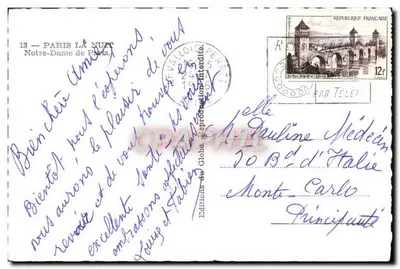 13 — PARIS LA NUIT
Notre-Dame de Paris.
Bien chère Amie
Bientôt nous l'espérons,
vous aurons le plaisir de vous
revoir et de vous trouver en
excellente santé
embrassons affectueusement
Louise et Fabien
Editions du Globe - Reproduction interdite.
REPUBLIQUE FRANÇAISE
12F
PAR TELE
elle
Pauline Médecin
50 Bd d'Italie
Monte Carlo
Principauté